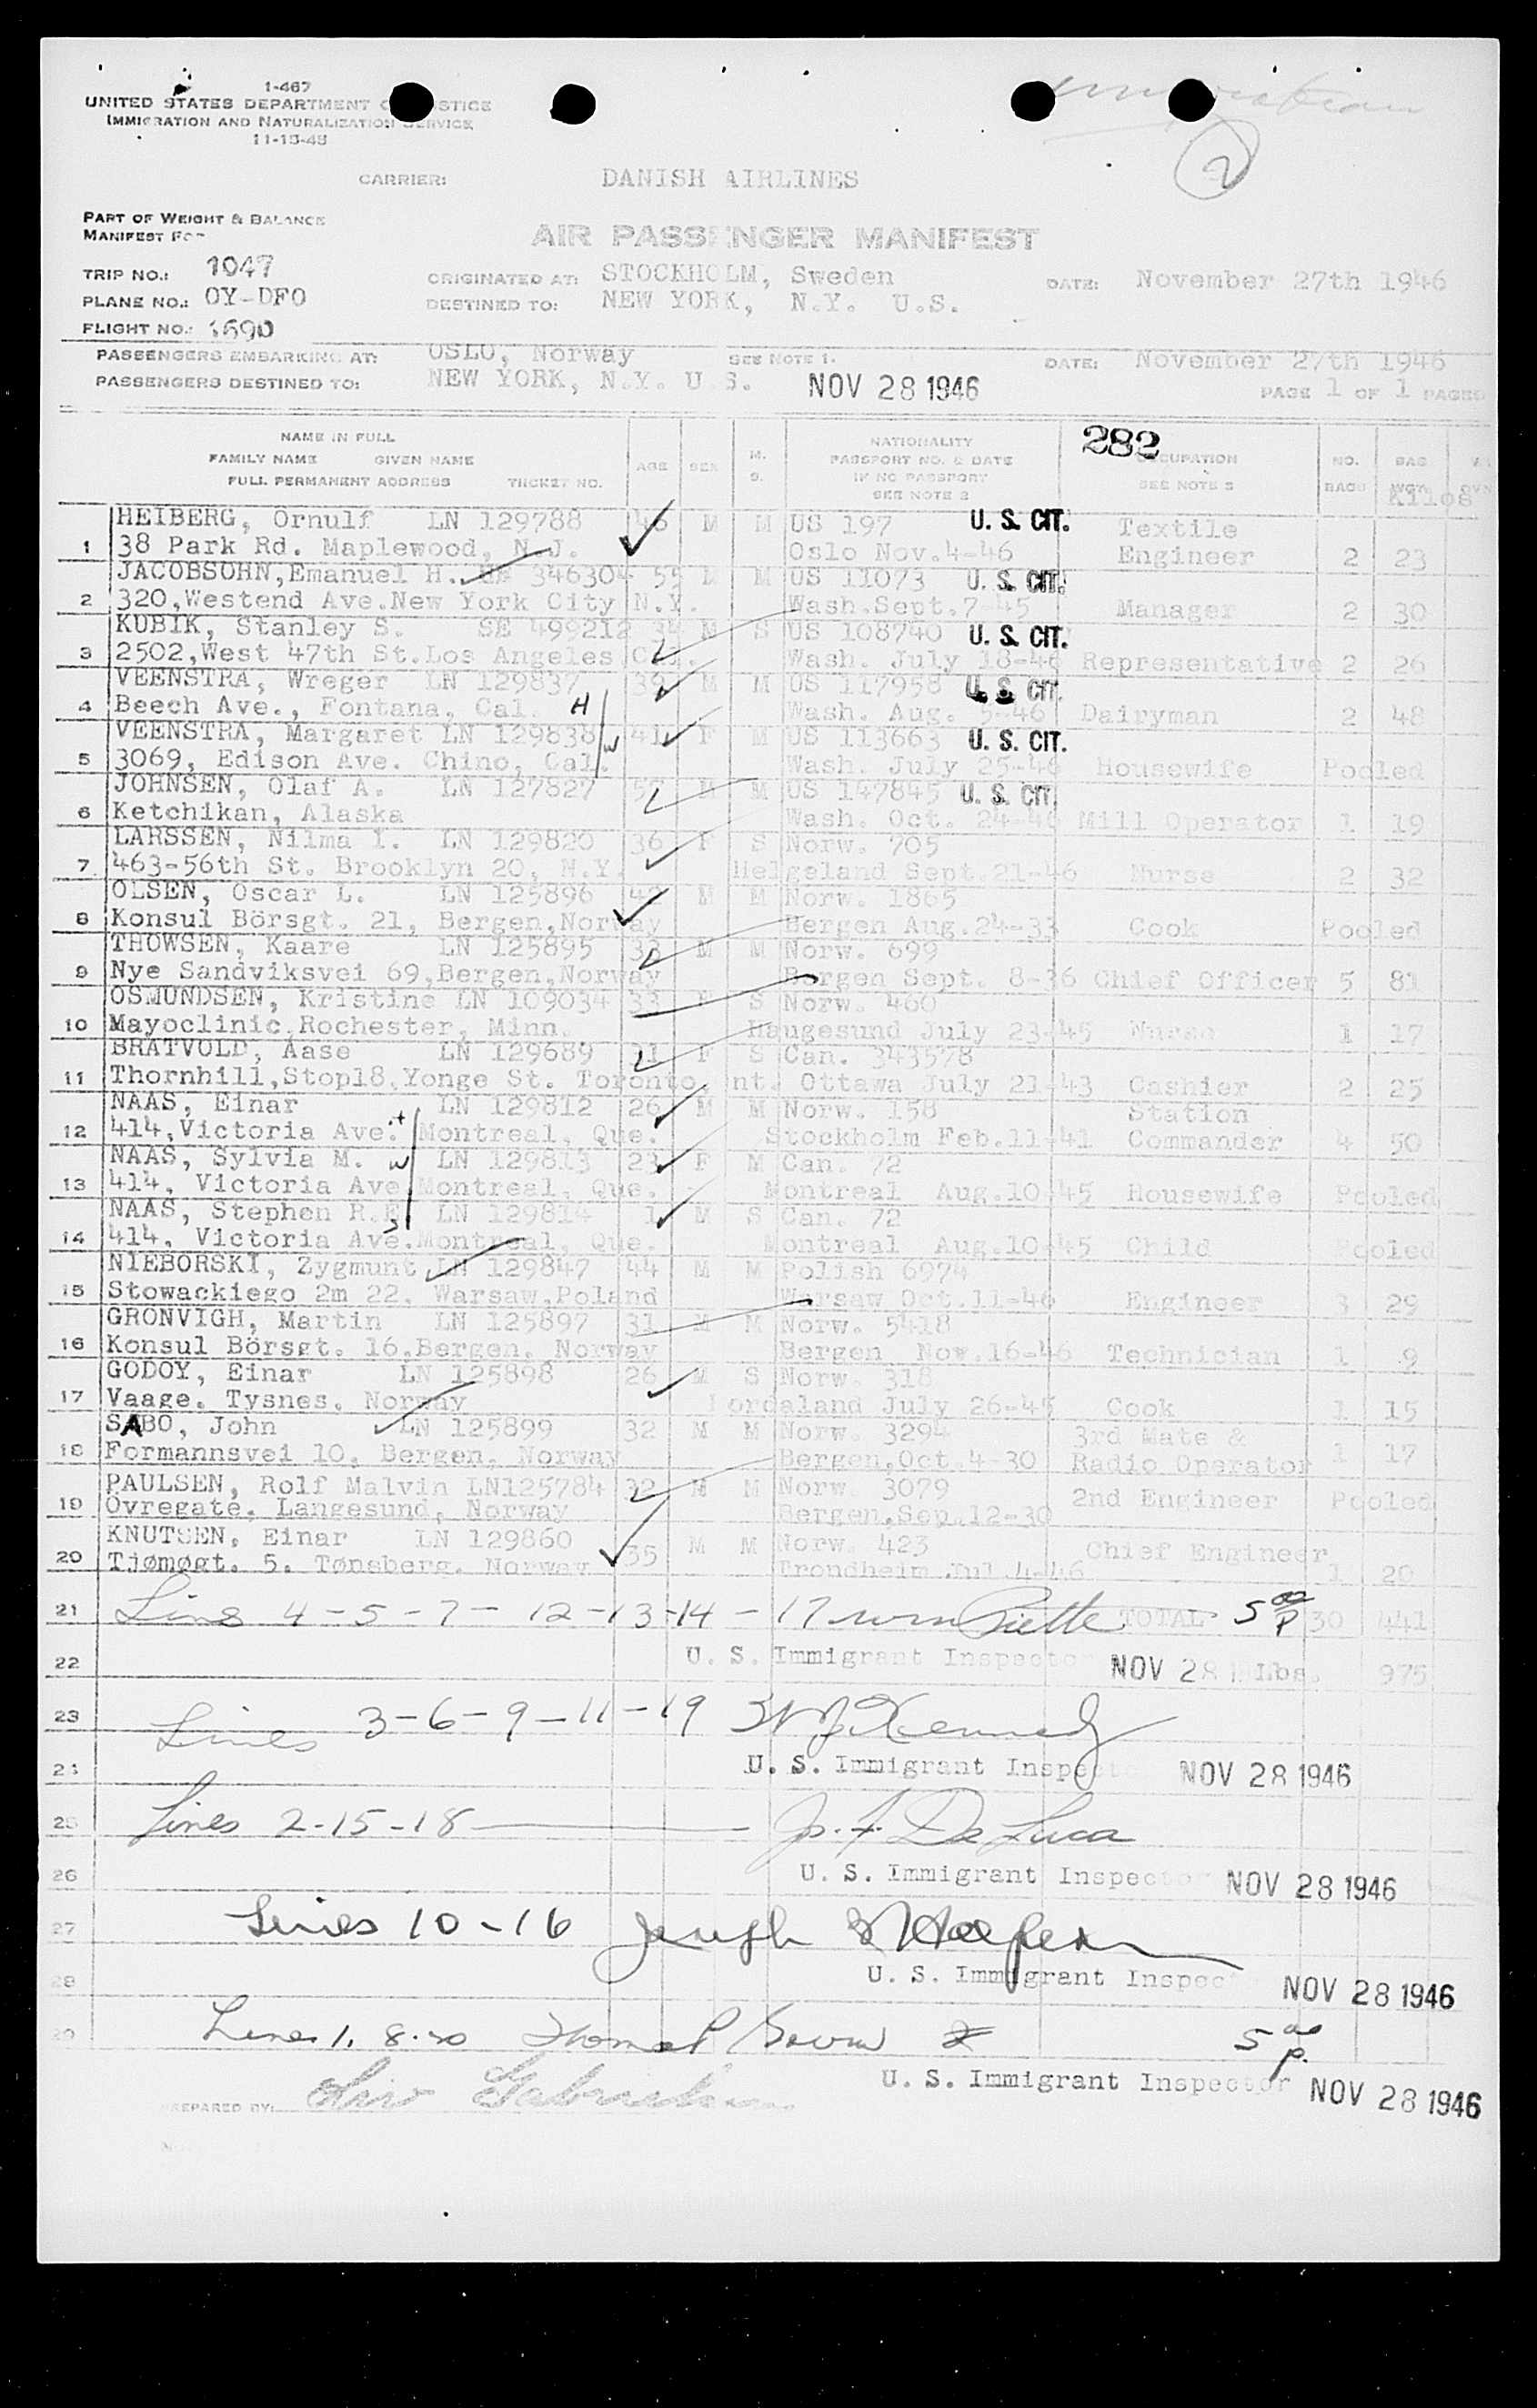 1-467
UNITED STATES DEPARTMENT OF JUSTICE
IMMIGRATION AND NATURALIZATION SERVICE
11-15-43
2
CARRIER: DANISH AIRLINES
PART OF WEIGHT & BALANCE
MANIFEST FOR
AIR PASSENGER MANIFEST
TRIP NO.: 1047 ORIGINATED AT: STOCKHOLM, Sweden DATE: November 27th 1946
PLANE NO.: OY-DFO DESTINED TO: NEW YORK, N.Y. U.S.
FLIGHT NO.: 1690
PASSENGERS EMBARKING AT: OSLO, Norway SEE NOTE 1. DATE: November 27th 1946
PASSENGERS DESTINED TO: NEW YORK, N.Y. U.S. NOV 28 1946 PAGE 1 OF 1 PAGES
282
NAME IN FULL
FAMILY NAME GIVEN NAME
FULL PERMANENT ADDRESS TICKET NO. AGE SEX M. S. NATIONALITY PASSPORT NO. & DATE IF NO PASSPORT SEE NOTE 2 OCCUPATION SEE NOTE 3 NO. BAGS BAG WGT. Kilos
HEIBERG, Ornulf LN 129788 46 M M US 197 U. S. CIT. Textile
1 38 Park Rd. Maplewood, N.J. Oslo Nov.4-46 Engineer 2 23
JACOBSOHN, Emanuel H. SE 346304 55 M M US 11073 U. S. CIT.
2 320, Westend Ave. New York City N.Y. Wash. Sept. 7-45 Manager 2 30
KUBIK, Stanley S. SE 499212 34 M S US 108740 U. S. CIT.
3 2502, West 47th St. Los Angeles Cal. Wash. July 18-46 Representative 2 26
VEENSTRA, Wreger LN 129837 39 M M US 117958 U. S. CIT.
4 Beech Ave., Fontana, Cal. H Wash. Aug. 5-46 Dairyman 2 48
VEENSTRA, Margaret LN 129838 W 41 F M US 113663 U. S. CIT.
5 3069, Edison Ave. Chino, Cal. Wash. July 25-46 Housewife Pooled
JOHNSEN, Olaf A. LN 127827 57 M M US 147845 U. S. CIT.
6 Ketchikan, Alaska Wash. Oct. 24-46 Mill Operator 1 19
LARSSEN, Nilma I. LN 129820 36 F S Norw. 705
7 463-56th St. Brooklyn 20, N.Y. Helgeland Sept. 21-46 Nurse 2 32
OLSEN, Oscar L. LN 125896 42 M M Norw. 1865
8 Konsul Börsgt. 21, Bergen, Norway Bergen Aug. 24-33 Cook Pooled
THOWSEN, Kaare LN 125895 33 M M Norw. 699
9 Nye Sandviksvei 69, Bergen, Norway Bergen Sept. 8-36 Chief Officer 5 81
OSMUNDSEN, Kristine LN 109034 33 F S Norw. 460
10 Mayoclinic, Rochester, Minn. Haugesund July 23-45 Nurse 1 17
BRATVOLD, Aase LN 129689 21 F S Can. 343578
11 Thornhill, Stop18, Yonge St. Toronto, Ont. Ottawa July 21-43 Cashier 2 25
NAAS, Einar LN 129812 26 M M Norw. 158 Station
12 414, Victoria Ave. Montreal, Que. Stockholm Feb. 11-41 Commander 4 50
NAAS, Sylvia M. W LN 129813 23 F M Can. 72
13 414, Victoria Ave. Montreal, Que. Montreal Aug. 10-45 Housewife Pooled
NAAS, Stephen R.E. LN 129814 1 M S Can. 72
14 414, Victoria Ave. Montreal, Que. Montreal Aug. 10-45 Child Pooled
NIEBORSKI, Zygmunt LN 129847 44 M M Polish 6974
15 Stowackiego 2m 22, Warsaw, Poland Warsaw Oct. 11-46 Engineer 3 29
GRONVIGH, Martin LN 125897 31 M M Norw. 5418
16 Konsul Börsgt. 16, Bergen, Norway Bergen Nov. 16-46 Technician 1 9
GODOY, Einar LN 125898 26 M S Norw. 318
17 Vaage, Tysnes, Norway Hordaland July 26-45 Cook 1 15
SABO, John LN 125899 32 M M Norw. 3294 3rd Mate &
18 Formannsvei 10, Bergen, Norway Bergen, Oct. 4-30 Radio Operator 1 17
PAULSEN, Rolf Malvin LN125784 32 M M Norw. 3079
19 Övregate, Langesund, Norway Bergen, Sep. 12-30 2nd Engineer Pooled
KNUTSEN, Einar LN 129860 35 M M Norw. 423 Chief Engineer
20 Tjømøgt. 5, Tønsberg, Norway Trondheim Jul. 4-46 1 20
21 Lines 4-5-7-12-13-14-17 TOTAL 5 00 P 30 441
22 U. S. Immigrant Inspector NOV 28 Lbs. 975
23 Lines 3-6-9-11-19 Kennedy
24 U. S. Immigrant Inspector NOV 28 1946
25 Lines 2-15-18 Jos. A. De Luca
26 U. S. Immigrant Inspector NOV 28 1946
27 Lines 10-16 Joseph
28 U. S. Immigrant Inspector NOV 28 1946
29 Lines 1, 8, 20 Thomas P. 5 00 p.
U. S. Immigrant Inspector NOV 28 1946
PREPARED BY: